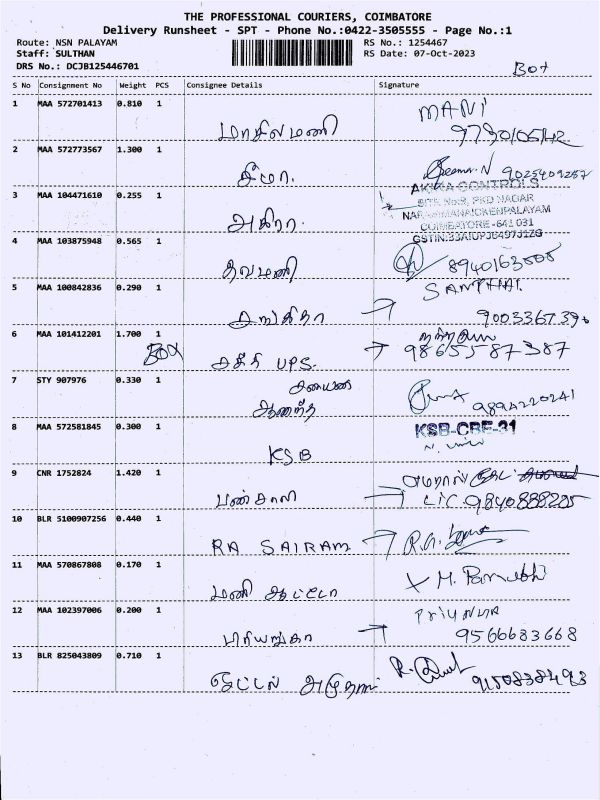 THE PROFESSIONAL COURIERS, COIMBATORE
Delivery Runsheet - SPT - Phone No.:0422-3505555 - Page No.:1
Route: NSN PALAYAM RS No.: 1254467
Staff: SULTHAN RS Date: 07-Oct-2023
DRS No.: DCJB125446701
Box
S No Consignment No Weight PCS Consignee Details Signature
1 MAA 572701413 0.810 1 MANI
மாசிலமணி
2 MAA 572773567 1.300 1
சீமா. 9025409257
3 MAA 104471610 0.255 1 AKIRA CONTROLS
SITE No:9, PKD NAGAR
NARASIMANAICKENPALAYAM
அகிரா. COIMBATORE-641 031
4 MAA 103875948 0.565 1
தவமணி
5 MAA 100842836 0.290 1
9003367396
6 MAA 101412201 1.700 1
BOX சக்தி UPS. 9865587387
7 STY 907976 0.330 1
ஆனந்த 9894220241
8 MAA 572581845 0.300 1 KSB-CBE-31
KSB
9 CNR 1752824 1.420 1
பன்சாலி LIC
10 BLR 5100907256 0.440 1
RA SAIRAM
11 MAA 570867808 0.170 1
மணி ஆட்டோ
12 MAA 102397006 0.200 1 Priyanka
பிரியங்கா 9566683668
13 BLR 825043809 0.710 1